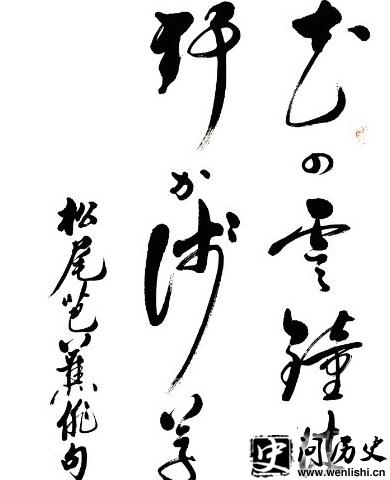 花の雲鐘
野か浅草
松尾芭蕉俳句
史 问历史
www.wenlishi.cn